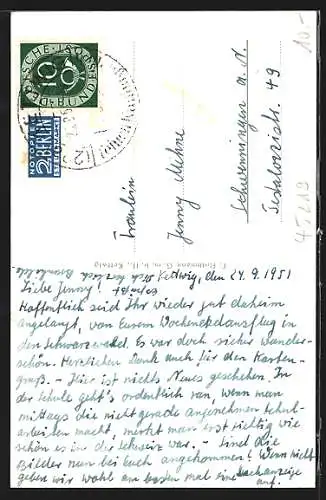 10.-
DEUTSCHE BUNDESPOST
10
NOTOPFER
2 BERLIN
STEUERMARKE
Fräulein
Jenny Mehne
Schwenningen a. N.
Pestalozzistr. 49
45219
Kettwig, den 24.9.1951
Liebe Jenny!
Hoffentlich seid Ihr wieder gut daheim
angelangt, von Eurem Wochenendausflug in
den Schwarzwald. Es war doch sicher wunder-
schön. Herzlichen Dank auch für den Karten-
gruß. - Hier ist nichts Neues geschehen. In
der Schule geht's ordentlich ran, wenn man
mittags die nicht gerade angenehmen Schul-
arbeiten macht, merkt man erst richtig wie
schön es in der Schweiz war. - Sind die
Bilder nun bei euch angekommen? Wenn nicht
geben wir wohl am besten mal eine Suchanzeige
auf.